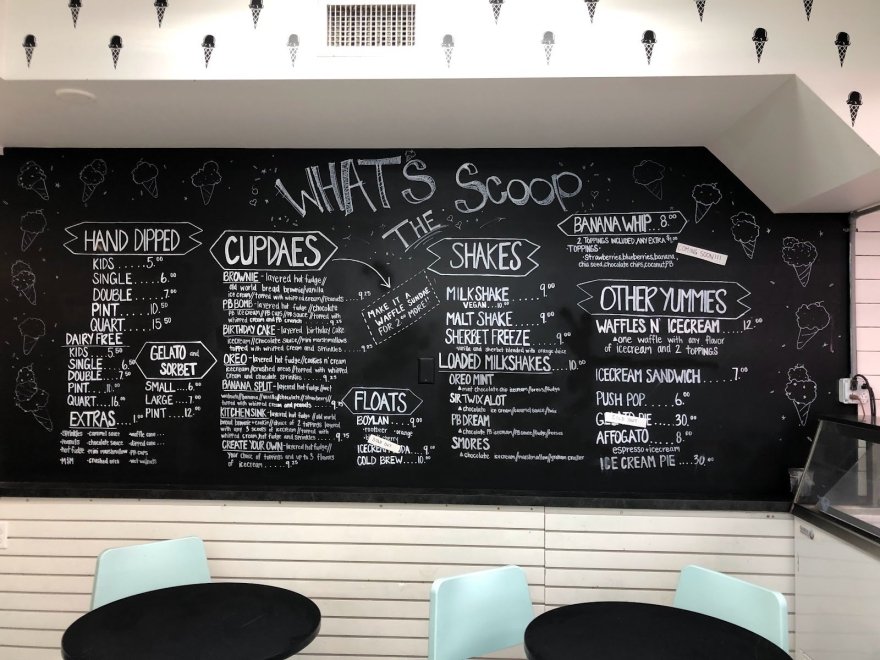 WHAT'S
THE
Scoop
HAND DIPPED
KIDS.....5.00
SINGLE.....6.00
DOUBLE.....7.00
PINT.....10.50
QUART....15.50
DAIRY FREE
KIDS...5.50
SINGLE...6.50
DOUBLE..7.50
PINT....11.00
QUART...16.00
EXTRAS....1.00
GELATO and
SORBET
SMALL...6.00
LARGE...7.00
PINT....12.00
CUPDAES
BROWNIE - layered hot fudge//
old world bread brownie/vanilla
ice cream//topped with whipped cream//peanuts 9.25
PB BOMB - layered hot fudge//chocolate
PB ice cream//PB cups//PB sauce//topped with
whipped cream and PB crunch
BIRTHDAY CAKE - layered birthday cake
ice cream//chocolate sauce//mini marshmallows
topped with whipped cream and sprinkles....9.25
OREO - layered hot fudge//cookies n' cream
ice cream//crushed oreos//topped with whipped
cream and chocolate sprinkles....9.25
BANANA SPLIT - layered hot fudge//wet
walnuts//vanilla, strawberry, chocolate ice cream
topped with whipped cream and peanuts
KITCHEN SINK - layered hot fudge//old world
bread brownie + cookie//choice of 2 toppings layered
with any 3 scoops of icecream//topped with
whipped cream, hot fudge and sprinkles....9.25
CREATE YOUR OWN - layered hot fudge//
your choice of toppings and up to 3 flavors
of icecream....9.25
MAKE IT A
WAFFLE SUNDAE
FOR 2.00 MORE!
FLOATS
BOYLAN....9.00
ICECREAM SODA..9.00
COLD BREW..10.00
SHAKES
MILKSHAKE....9.00
VEGAN....10.00
MALT SHAKE....9.00
SHERBET FREEZE....9.00
vanilla and sherbet blended with orange juice
LOADED MILKSHAKES....10.00
OREO MINT
mint chocolate chip icecream/oreos/fudge
SIR TWIX ALOT
chocolate ice cream/caramel sauce/twix
PB DREAM
chocolate PB icecream/PB sauce/fudge/reeses
SMORES
chocolate icecream/marshmallow/graham cracker
BANANA WHIP..8.00
2 TOPPINGS INCLUDED, ANY EXTRA $1.00
-TOPPINGS-
strawberries, blueberries, banana,
chia seed, chocolate chips, coconut, PB
COMING SOON!!!
OTHER YUMMIES
WAFFLES N' ICECREAM....12.00
one waffle with any flavor
of icecream and 2 toppings
ICECREAM SANDWICH....7.00
PUSH POP....6.00
PIE....30.00
AFFOGATO....8.00
espresso + icecream
ICE CREAM PIE....30.00